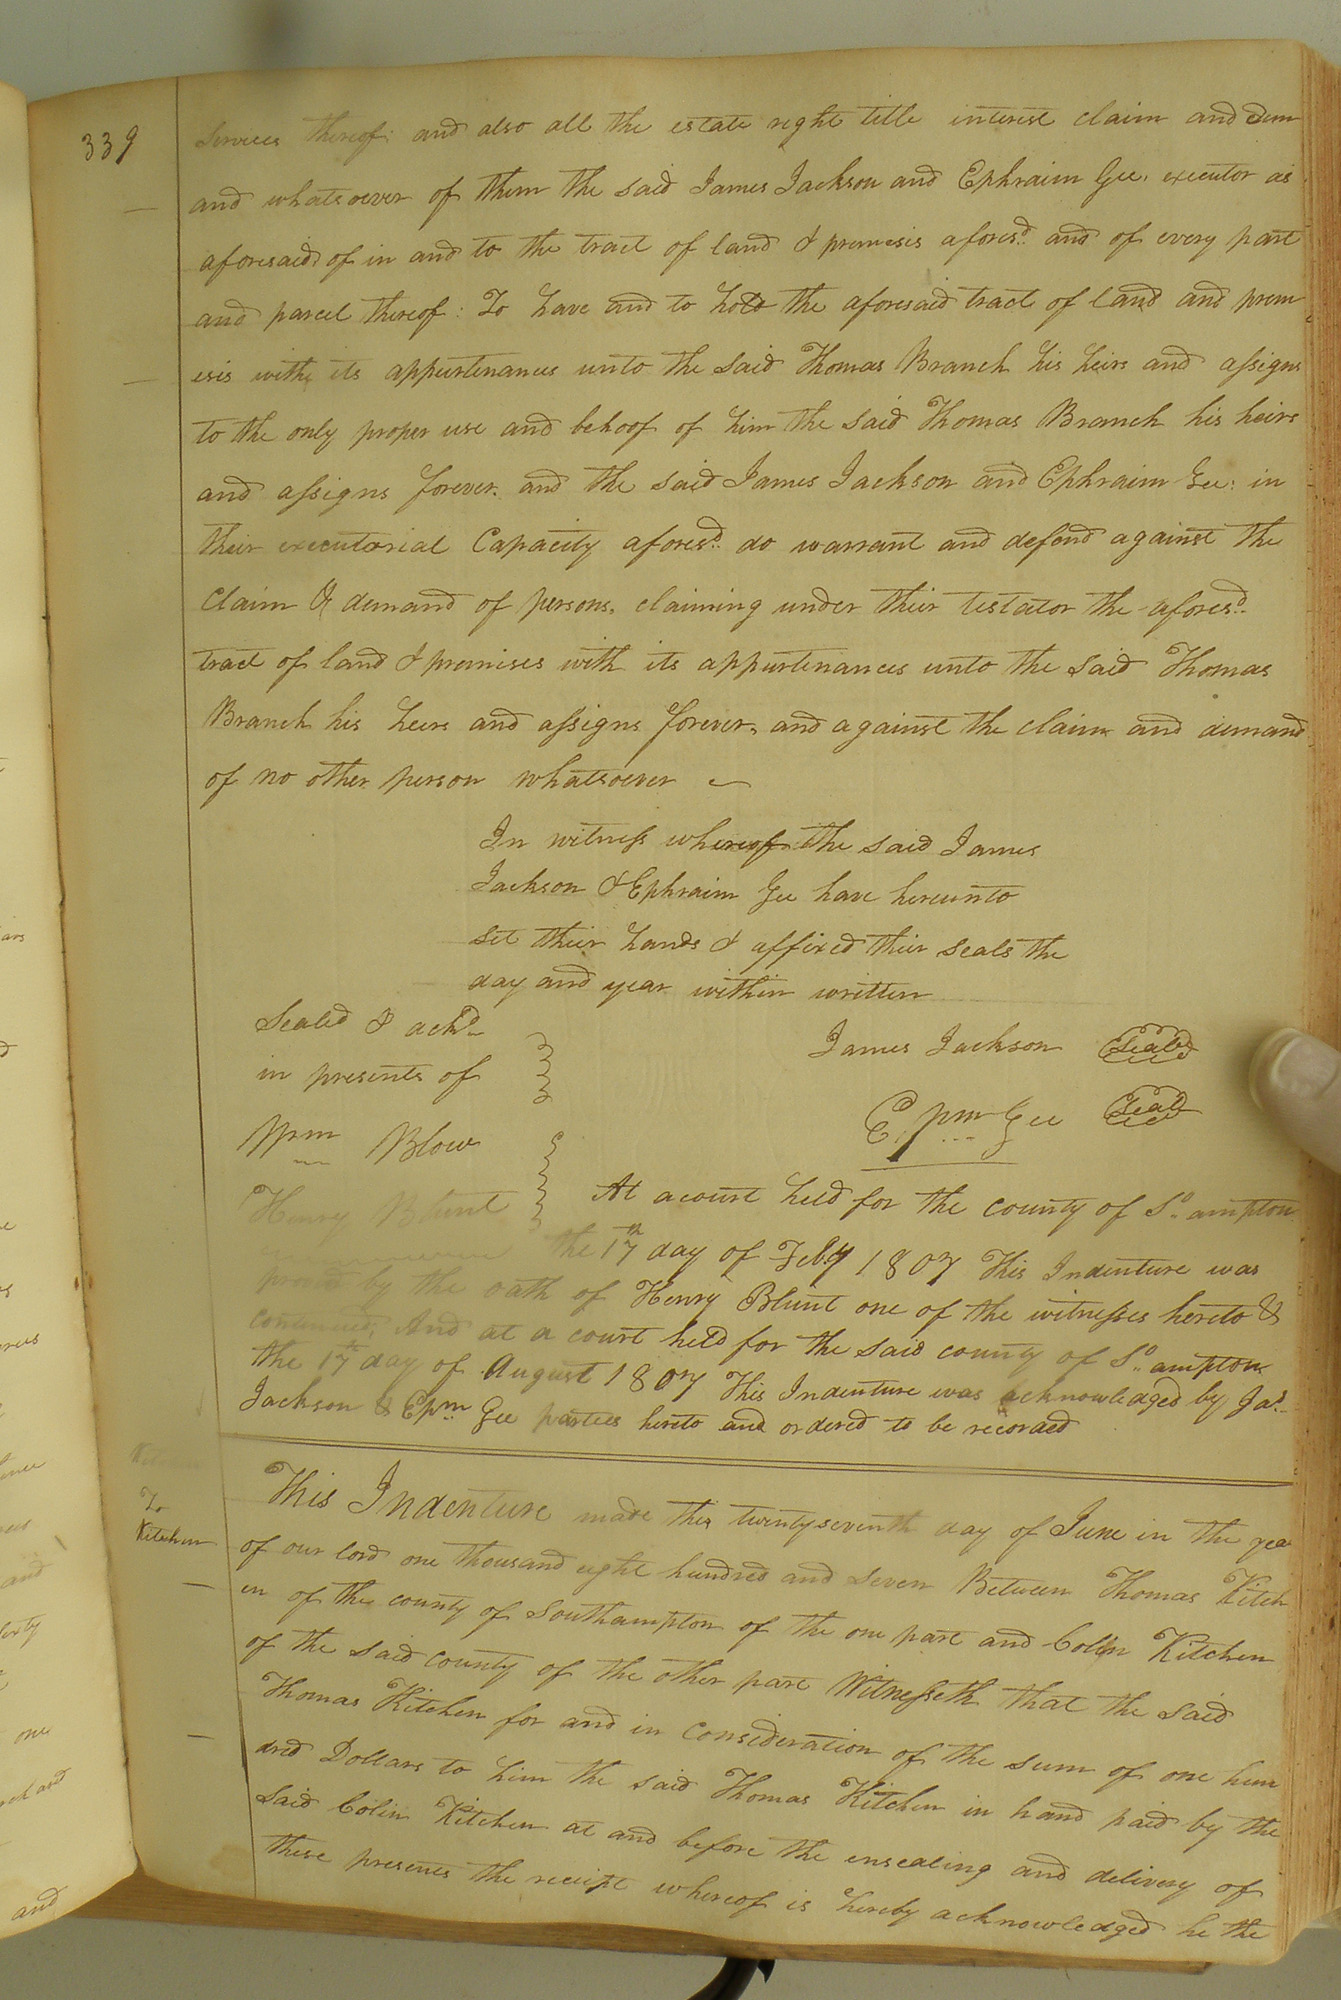 339
Services thereof: and also all the estate right title interest claim and dem
and whatsoever of them the said James Jackson and Ephraim Gee, executor as
aforesaid, of in and to the tract of land & premesis aforesd. and of every part
and parcel thereof: To have and to hold the aforesaid tract of land and prem
esis with its appurtenances unto the said Thomas Branch his heirs and assigns
to the only proper use and behoof of him the said Thomas Branch his heirs
and assigns forever. and the said James Jackson and Ephraim Gee: in
their executorial Capacity aforesd. do warrant and defend against the
claim & demand of persons, claiming under their testator the aforesd.
tract of land & premises with its appurtenances unto the said Thomas
Branch his heirs and assigns forever, and against the claim and demand
of no other person whatsoever
In witness whereof the said James
Jackson & Ephraim Gee have hereunto
set their hands & affixed their seals the
day and year within written
Seald & ackd
in presents of
Wm Blow
Henry Blunt
James Jackson Seal
Epm Gee Seal
At a court held for the county of So. ampton
the 17th day of Feby 1807 This Indenture was
proved by the oath of Henry Blunt one of the witnesses hereto &
continued, And at a court held for the said county of So. ampton
the 17th day of August 1807 This Indenture was acknowledged by Jas.
Jackson & Epm Gee parties hereto and ordered to be recorded
Kitchen
To
Kitchen
This Indenture made this twenty seventh day of June in the yea
of our lord one thousand eight hundred and seven Between Thomas Kitch
en of the county of Southampton of the one part and Colin Kitchen
of the said county of the other part Witnesseth that the said
Thomas Kitchen for and in consideration of the sum of one hun
dred Dollars to him the said Thomas Kitchen in hand paid by the
said Colin Kitchen at and before the ensealing and delivery of
these presents the receipt whereof is hereby acknowledged he the